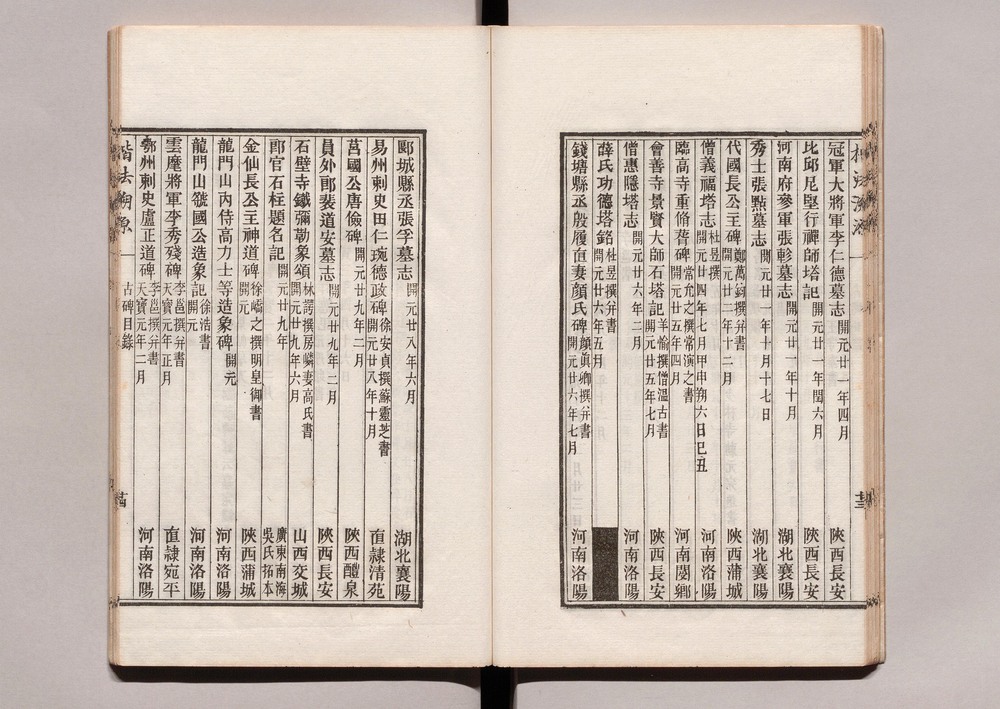 冠軍大將軍李仁德墓志 開元廿一年四月 陝西長安
比邱尼堅行禪師塔記 開元廿一年閏六月 陝西長安
河南府參軍張軫墓志 開元廿一年十月 湖北襄陽
秀士張點墓志 開元廿一年十月十七日 湖北襄陽
代國長公主碑 鄭萬鈞撰幷書 開元廿二年十二月 陝西蒲城
僧義福塔志 杜昱撰 開元廿四年七月甲申朔六日己丑 河南洛陽
臨高寺重脩碑 常允之撰常演之書 開元廿五年四月 河南閿鄉
會善寺景賢大師石塔記 羊愉撰僧溫古書 開元廿五年七月 陝西長安
僧惠隱塔志 開元廿六年二月 河南洛陽
薛氏功德塔銘 杜昱撰幷書 開元廿六年五月
錢塘縣丞殷履直妻顏氏碑 顏眞卿撰幷書 開元廿六年七月 河南洛陽
郾城縣丞張孚墓志 開元廿八年六月 湖北襄陽
易州刺史田仁琬德政碑 徐安貞撰蘇靈芝書 開元廿八年十月 直隸清苑
莒國公唐儉碑 開元廿九年二月 陝西醴泉
員外郎裴道安墓志 開元廿九年二月 陝西長安
石壁寺鐵彌勒象頌 林諤撰房嶙妻高氏書 開元廿九年六月 山西交城
郎官石柱題名記 開元廿九年 廣東南海吳氏拓本
金仙長公主神道碑 徐嶠之撰明皇御書 開元 陝西蒲城
龍門山內侍高力士等造象碑 開元 河南洛陽
龍門山虢國公造象記 徐浩書 開元 河南洛陽
雲麾將軍李秀殘碑 李邕撰幷書 天寶元年正月 直隸宛平
鄂州刺史盧正道碑 李邕撰幷書 天寶元年二月 河南洛陽
楷法溯源 一 古碑目錄